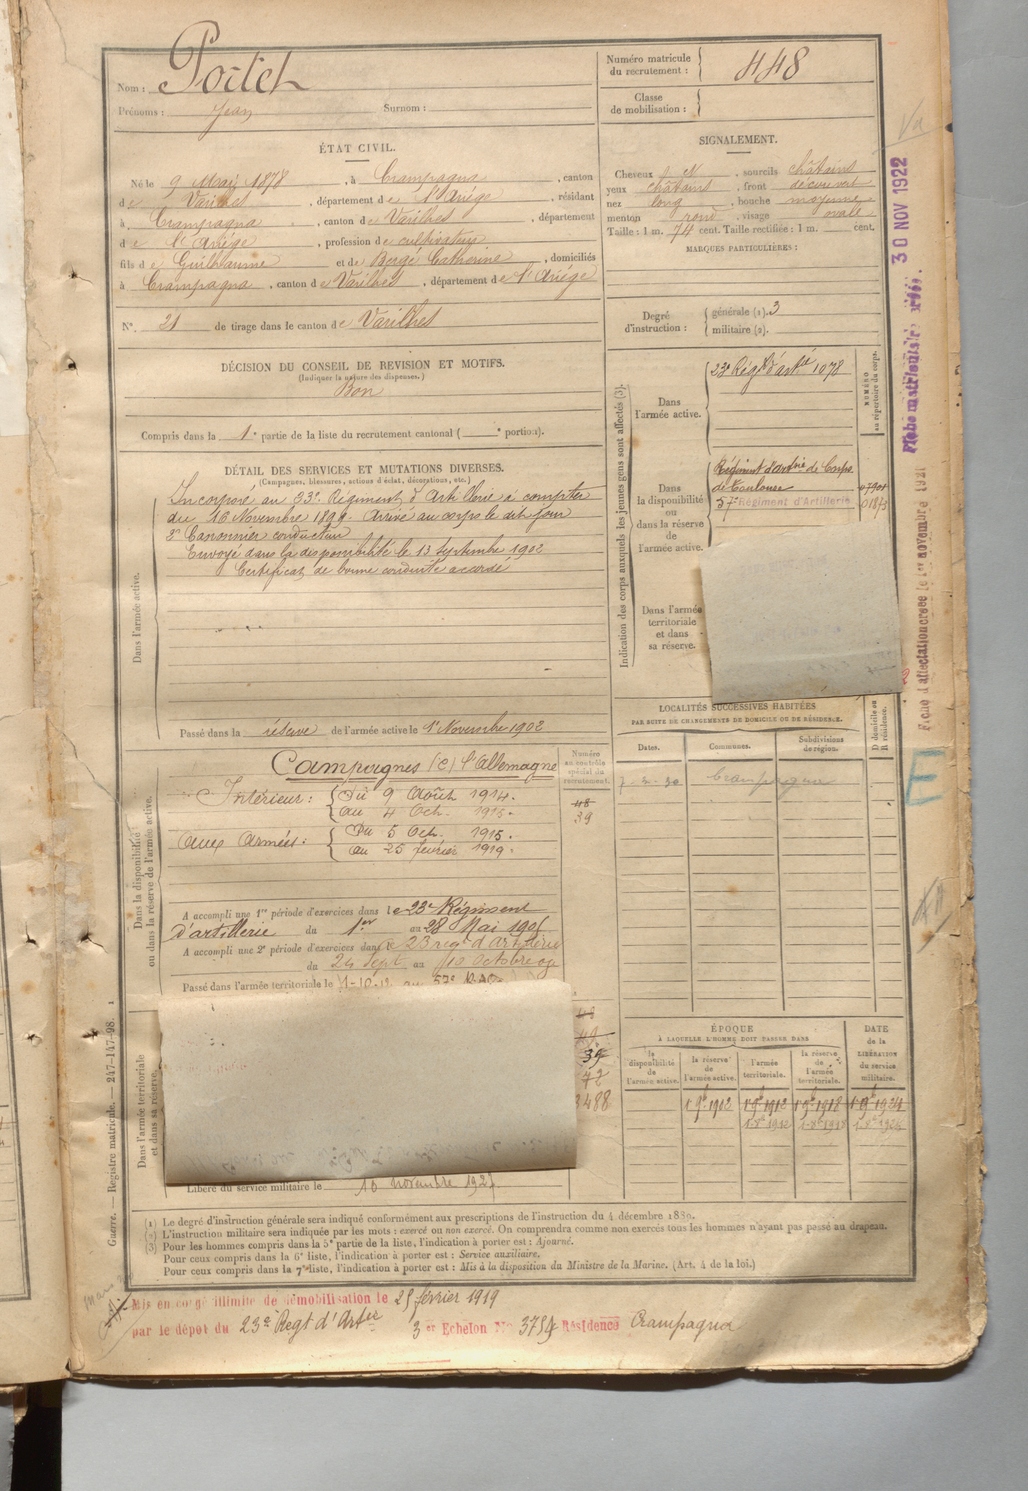 Nom : Portet
Prénoms : Jean Surnom :
Numéro matricule du recrutement : 448
Classe de mobilisation :
ÉTAT CIVIL.
Né le 9 Mai 1878, à Crampagna, canton
de Varilhes, département de l'Ariège, résidant
à Crampagna, canton de Varilhes, département
de l'Ariège, profession de cultivateur
fils de Guilhaume et de Bergé Catherine, domiciliés
à Crampagna, canton de Varilhes, département de l'Ariège
N° 21 de tirage dans le canton de Varilhes
SIGNALEMENT.
Cheveux et, sourcils châtains
yeux châtains, front découvert
nez long, bouche moyenne
menton rond, visage ovale
Taille : 1 m. 74 cent. Taille rectifiée : 1 m. cent.
MARQUES PARTICULIÈRES :
Degré d'instruction : générale (1). 3
militaire (2).
DÉCISION DU CONSEIL DE REVISION ET MOTIFS.
(Indiquer la nature des dispenses.)
Bon
Compris dans la 1re partie de la liste du recrutement cantonal ( e portion).
DÉTAIL DES SERVICES ET MUTATIONS DIVERSES.
(Campagnes, blessures, actions d'éclat, décorations, etc.)
Dans l'armée active.
Incorporé au 23e Régiment d'Artillerie à compter
du 16 Novembre 1899. Arrivé au corps le dit jour
2e Canonnier conducteur
Envoyé dans la disponibilité le 13 Septembre 1902
Certificat de bonne conduite accordé
Passé dans la réserve de l'armée active le 1er Novembre 1902
Indication des corps auxquels les jeunes gens sont affectés (3).
Dans l'armée active.
23e Régt d'artie 1078
NUMÉRO au répertoire du corps.
Dans la disponibilité ou dans la réserve de l'armée active.
Régiment d'artrie de Corps
de Toulouse
57e Régiment d'Artillerie
Dans l'armée territoriale et dans sa réserve.
Dans la disponibilité ou dans la réserve de l'armée active.
Campagnes (c) l'Allemagne
Intérieur : Du 9 Août 1914.
au 4 Oct. 1915.
Aux Armées : Du 5 Oct. 1915.
au 25 février 1919.
Numéro au contrôle spécial du recrutement.
48
39
A accompli une 1re période d'exercices dans le 23e Régiment
d'artillerie du 1er au 28 Mai 1905
A accompli une 2e période d'exercices dans le 23 regt d'Artillerie
du 24 Sept au 10 Octobre
Passé dans l'armée territoriale le 1-10-12 au 57e
Dans l'armée territoriale et dans sa réserve.
39
72
3488
Libéré du service militaire le 10 novembre 1927.
LOCALITÉS SUCCESSIVES HABITÉES
PAR SUITE DE CHANGEMENTS DE DOMICILE OU DE RÉSIDENCE.
Dates. Communes. Subdivisions de région. D domicile ou R résidence.
7-3-30 Crampagna
ÉPOQUE
À LAQUELLE L'HOMME DOIT PASSER DANS
DATE de la LIBÉRATION du service militaire.
la disponibilité de l'armée active. la réserve de l'armée active. l'armée territoriale. la réserve de l'armée territoriale.
Guerre. — Registre matricule. — 247-147-98. 1
(1) Le degré d'instruction générale sera indiqué conformément aux prescriptions de l'instruction du 4 décembre 1889.
(2) L'instruction militaire sera indiquée par les mots : exercé ou non exercé. On comprendra comme non exercés tous les hommes n'ayant pas passé au drapeau.
(3) Pour les hommes compris dans la 5e partie de la liste, l'indication à porter est : Ajourné.
Pour ceux compris dans la 6e liste, l'indication à porter est : Service auxiliaire.
Pour ceux compris dans la 7e liste, l'indication à porter est : Mis à la disposition du Ministre de la Marine. (Art. 4 de la loi.)
Mis en congé illimité de démobilisation le 25 février 1919
par le dépot du 23e Regt d'Artie 3e Echelon N° 3754 Résidence Crampagna
30 NOV 1922
Fiche d'affectation créée le 1er novembre 1921
E